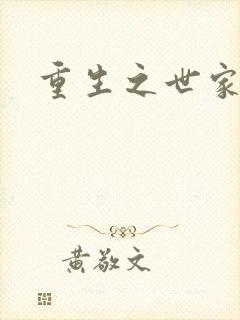 重生之世家
黄敬文